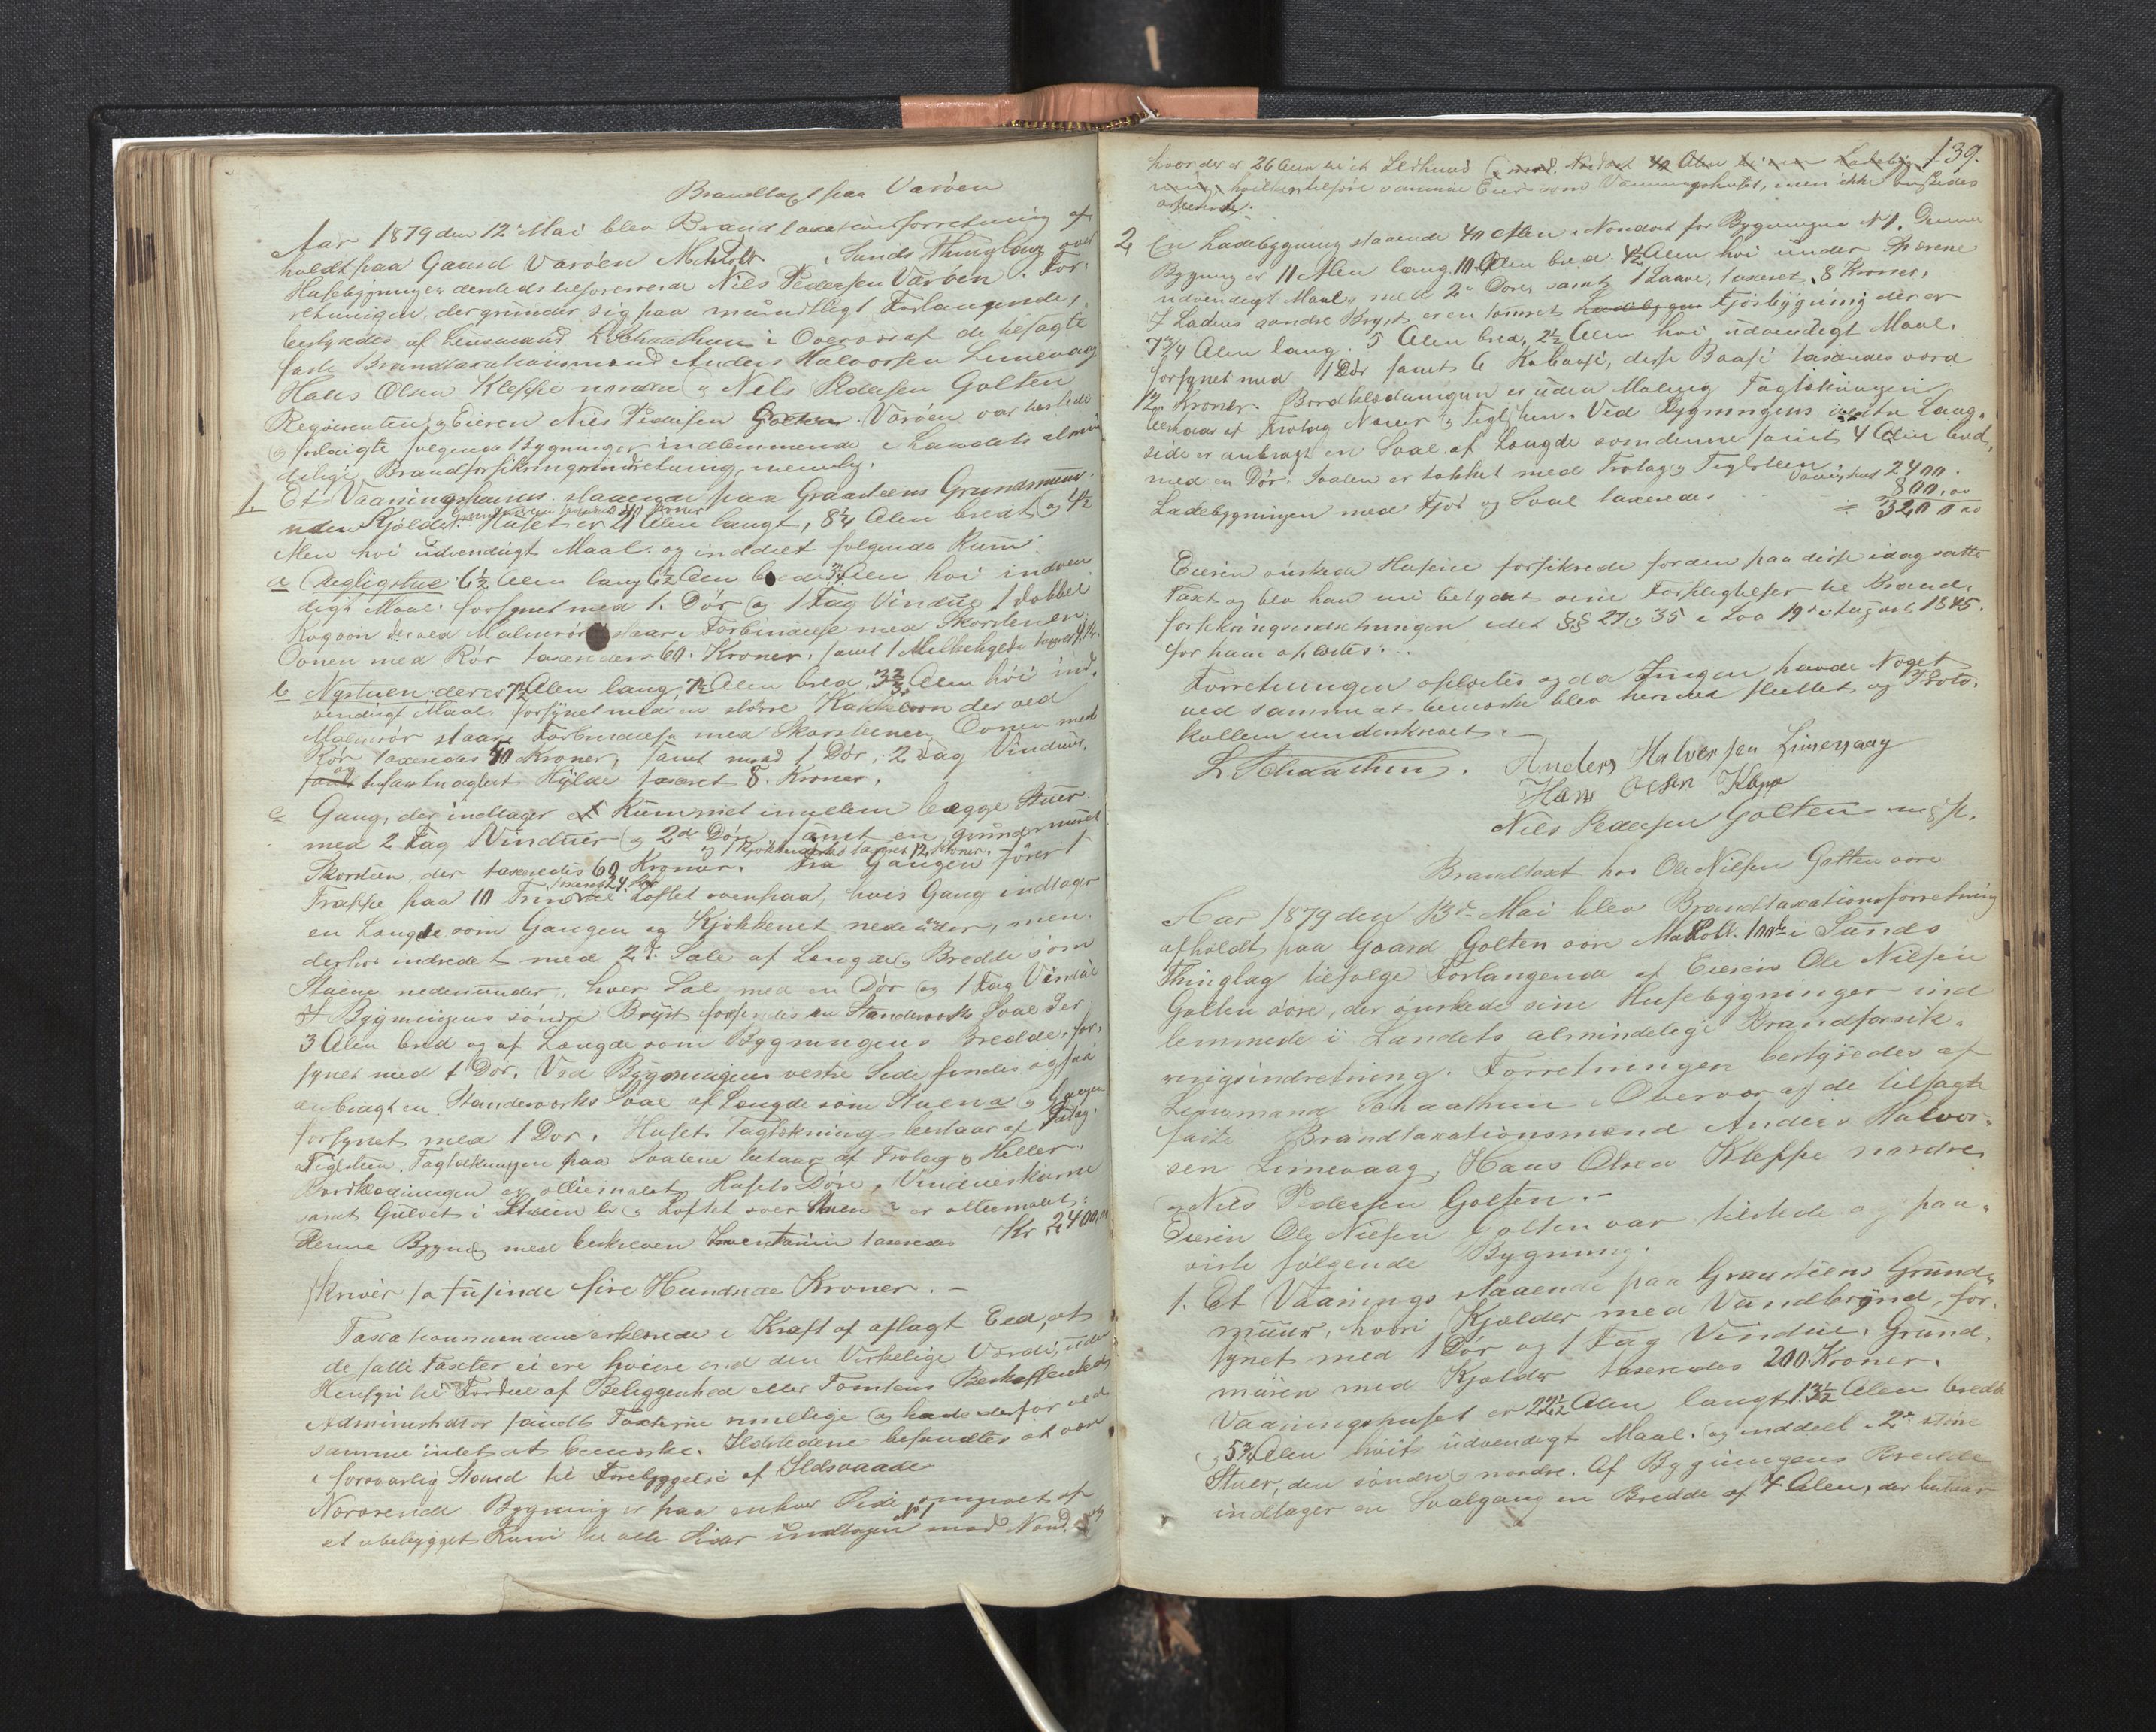 Brandtaxt paa Varöen
Aar 1879 den 12te Mai blev Brandtaxationsforretning af-
holdt paa Gaard Varöen i Sunds Thinglag over
Husebygninger dersteds tilhörende Niels Pedersen Varöen. For-
retningen, der grunder sig paa mundtligt Forlangende,
bestyredes af Lensmand L Schaathun i Overvær af de tilsagte
faste Brandtaxationsmænd Anders Halvorsen Limevaag
Hans Olsen Kleppe nordre og Nils Pedersen Golten
Reqvirenten og Eieren Niels Pedersen Golten Varöen var tilstede
og forlangte følgende Bygninger indlemmede i Landets almin
delige Brandforsikringsindretning, nemlig:
1. Et Vaaningshuus staaende paa Graasteens Grundmuur
uden Kjelder. Grundmuren taxeres 40 Kroner Huset er 21 Alen langt, 8¼ Alen bredt og 4½
Alen höi udvendigt Maal. og inddelt følgende Rum:
a Dagligstue 6½ Alen lang 6½ Alen bred Alen höi indven
digt Maal. forsynet med 1. Dör og 1 Fag Vindue 1 dobbel
Kogoon der ved Malmrör staar i Forbindelse med Skorstenen.
Oonen med Rör taxeredes 60. Kroner. samt 1 Melkehylde taxeret 4 Kr.
b Nystuen der er 7½ Alen lang, 7½ Alen bred, 3¾ Alen höi ind.
vendigt Maal. forsynet med en större Kakkeloon der ved
Malmrör staar i Forbindelse med Skorstenen. Oonen med
Rör taxeredes 50 Kroner, samt med 1 Dör, 2 Fag Vinduer,
og 1 fastnaglet Hylde taxeret 8. Kroner.
c Gang, der indtager et Rummet imellem begge Stuer.
med 2 Fag Vinduer og 2de Döre, samt en grundmuret
og 1 Kjökkenbænk taxeret 12 Kroner.
Skorsten, der taxeredes 60 Kroner. Fra Gangen förer 1
Trappe paa 10 Trin taxeret 24 Kr til Loftet ovenpaa, hvis Gang indtager
en Længde som Gangen og Kjökkenet nedenunder, men
derhos indredet med 2de Sale af Længde og Bredde som
Stuene nedenunder, hver Sal med en Dör og 1 Fag Vindue
I Bygningens söndre Bryst forfindes en Standverks Sval der er
3 Alen bred og af Længde som Bygningens Bredde, for.
synet med 1 Dör. Ved Bygningens vestre Side findes ogsaa
anbragt en Standverks Sval af Længde som Stuen a og Gangen
forsynet med 1 Dör. Husets Tagtækning bestaar af Frolag.
Teglsteen. Tagtækningen paa Svalene bestaar af Frolag og Heller.
Bordklædningen er olliemalet, Husets Döre, Vindueskarme
samt Gulvet i Stuen b og Loftet over Stuen a er olliemalet:
Denne Bygning med beskreven Inventarium taxeredes Kr 2,400,00
skriver to tusinde fire Hundrede Kroner. —
Taxationsmændene erklærede i Kraft af aflagt Eed, at
de satte Taxter ei ere höiere end den Virkelige Værdi, uden
Hensyn til Fordeel af Beliggenhed eller Tomtens Beskaffenhed
Administrator fandt Taxterne rimelige og havde derfor ved
samme intet at bemærke. Ildstederne befandtes at være
i forsvarlig Stand til Forebyggelse af Ildsvaade
Nærværende Bygning No 1 er paa enhver Side omgivet af
et ubebygget Rum til alle Sider undtagen mod Nord
139.
hvor der er 26 Alen til et Ildhuus
hvilket tilhöre samme Eier som Vaaningshuset, men ikke önskedes
assureret.
2, En Ladebygning staaende 40 Alen i Nordost for Bygningen N 1. Denne
Bygning er 11 Alen lang. 10 Alen bred. 4½ Alen höi under Sperrene
udvendigt Maal, med 2de Döre, samt 1 Laave, taxeret 8 Kroner.
I Ladens söndre Bryst er en tömret Ladebygn Fjösbygning der er
7¾ Alen lang. 5 Alen bred, 2½ Alen höi udvendigt Maal.
forsynet med 1 Dör samt 6 Kobaase, disse Baase taxeredes værd
12, Kroner. Bordklædningen er uden Maling Tagtækningen
bestaar af Frolag Næver og Teglsteen. Ved Bygningens vestre Lang-
side er anbragt en Sval af Længde som denne samt 4 Alen bred,
med en Dör. Svalen er tækket med Frolag og Teglsteen
Vaaningshuset 2400.
Ladebygningen med Fjös og Sval taxeredes 800.00
÷ 3200 00
Eieren önskede Husene forsikrede for den paa disse idag satte
Taxt og blev han nu betydet sine Forpligtelser til Brand.
forsikringsindretningen efter §§ 27 og 35 i Lov 19de August 1845.
for ham oplæstes:..
Forretningen oplæstes og da Ingen havde Noget
ved samme at bemærke blev hermed sluttet og Proto.
kollen underskrevet.
L. Schaathun. Anders Halversen Limevaag
Hans Olsen Klepe
Niels Pedersen Golten
Brandtaxt hos Ole Nilsen Golten övre
Aar 1879 den 13de Mai blev Brandtaxationsforretning
afholdt paa Gaard Golten övre i Sunds
Thinglag tilfølge Forlangende af Eieren Ole Nilsen
Golten övre, der önskede sine Husebygninger ind
lemmede i Landets almindelige Brandforsik-
ringsindretning. Forretningen bestyredes af
Lensmand Schaathun i Overvær af de tilsagte
faste Brandtaxationsmænd Anders Halvor-
sen Limevaag, Hans Olsen Kleppe nordre
og Nils Pedersen Golten. —
Eieren Ole Nilsen Golten var tilstede og paa-
viste følgende Bygning.
1. Et Vaanings staaende paa Graasteens Grund-
muur, hvori Kjelder med Vandbrynd, for.
synet med 1 Dör og 1 Fag Vindue. Grund-
muren med Kjelder taxeredes 200 Kroner.
Vaaningshuset er 22½ Alen langt 13½ Alen bredt
og 5¾ Alen höit udvendigt Maal. og inddeelt i 2de störe
Stuer, den söndre og nordre. Af Bygningens Bredde
indtager en Svalgang en Bredde af 4 Alen, der bestaar